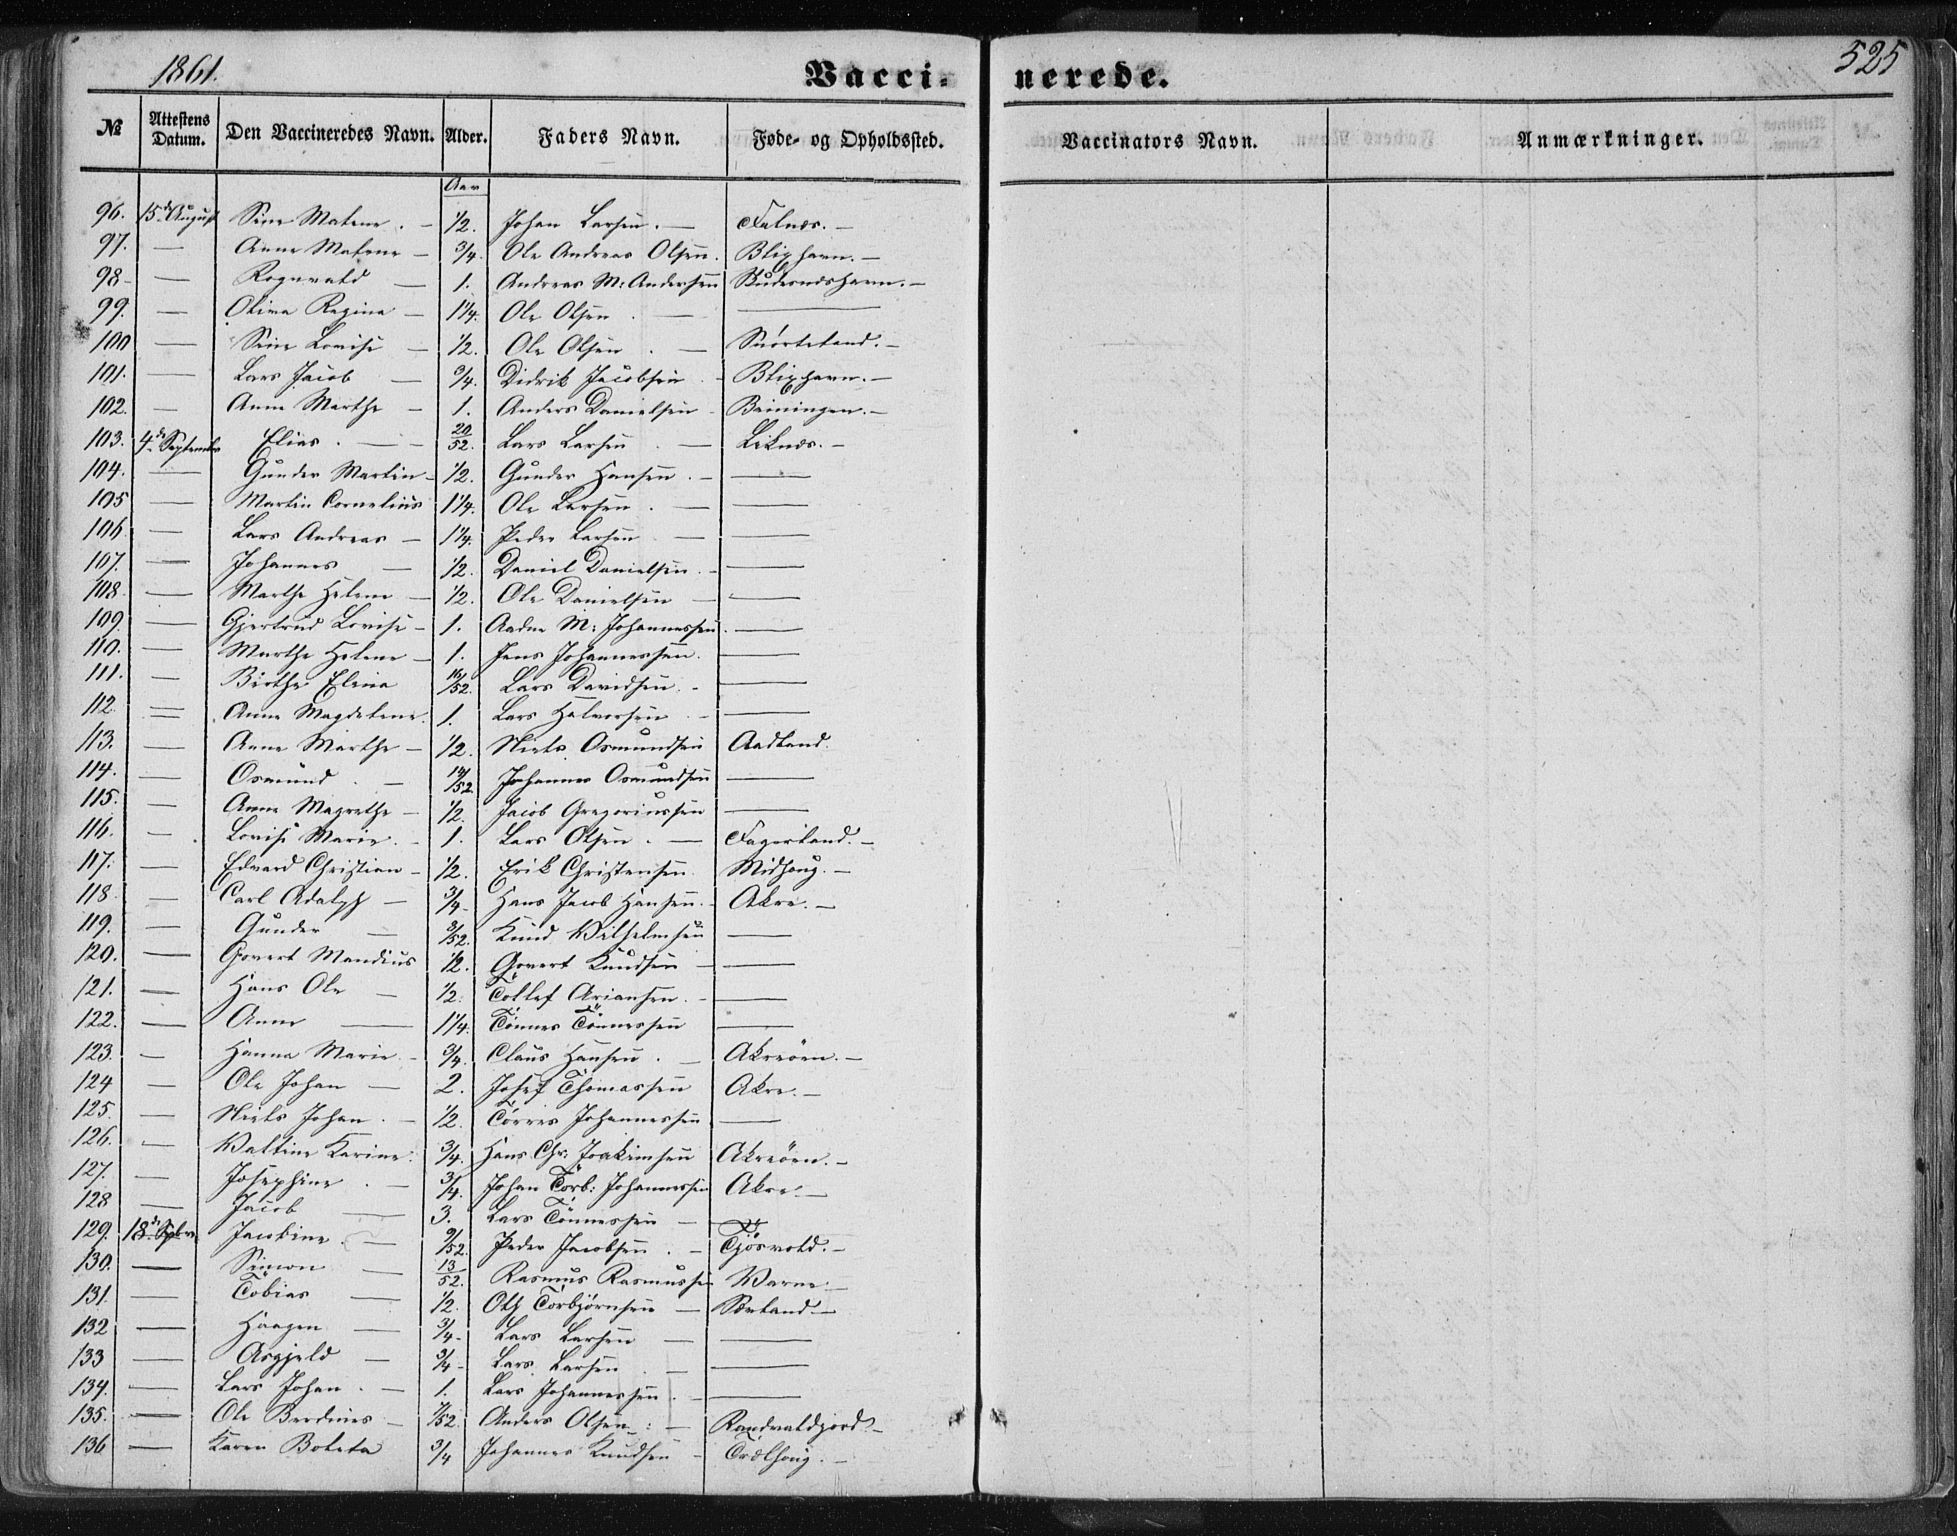 1861.
Vacci-
nerede.
525
№ Attestens Datum. Den Vaccineredes Navn. Alder. Faders Navn. Føde- og Opholdssted. Vaccinators Navn. Anmærkninger.
Aar
96. 15de August Sine Malene. - 1/2. Johan Larsen. - Falnæs. -
97. — Anne Malene - 3/4. Ole Andreas Olsen. Blixhavn. -
98 - — Rognvald — 1. Andreas M: Andersen Skudesnæshavn. -
99. — Olina Regine - 1 1/4. Ole Olsen . — ——
100 — Sine Lovise - 1/2. Ole Olsen . — Snørteland. -
101. — Lars Jacob — 3/4. Didrik Jacobsen . - Blixhavn. -
102. — Anne Marthe - 1. Anders Danielsen - Beiningen. -
103. 4de September Elias . — 20/52. Lars Larsen . — Liknæs. -
104. — Gunder Martin - 1/2. Gunder Hansen . - ——
105 — Martin Cornelius 1 1/4. Ole Larsen . — ——
106 — Lars Andreas - 1 1/4. Peder Larsen — ——
107. — Johannes — 1/2. Daniel Danielsen. - ——
108. — Marthe Helene - 1/2. Ole Danielsen — ——
109. — Gjertrud Lovise - 1. Aadne M: Johannessen. ——
110. — Marthe Helene - 1. Jens Johannessen. ——
111. — Birthe Elena 16/52. Lars Davidsen. - ——
112. — Anne Magdelene. 1. Lars Halvorsen . - ——
113. — Anne Marthe - 1/2. Niels Osmundsen Aadland.
114. — Osmund . - 14/52. Johannes Osmundsen ——
115. — Anne Magrethe - 1/2. Jacob Gregoriussen ——
116. — Lovise Marie. - 1. Lars Olsen . — Fagerland. -
117. — Edvard Christian - 1/2. Erik Christensen. Midhoug. -
118. — Carl Adolph - 3/4. Hans Jacob Hansen. - Akre. -
119. — Gunder — 3/52. Knud Vilhelmsen ——
120. — Govert Mandius 1/2. Govert Knudsen - ——
121. — Hans Ole — 1/2. Tollef Ariansen. - ——
122. — Anne — 1 1/4. Tönnes Tönnessen ——
123. — Hanna Marie. - 3/4. Claus Hansen . — Akreöen. -
124 — Ole Johan — 2. Josef Thomassen Akre. -
125. — Niels Johan . - 1/2. Törres Johannessen ——
126. — Valtine Karine. 3/4. Hans Chr: Joakimsen Akreöen. -
127. — Josephine . - 3/4. Johan Torb: Johannessen Akre. -
128 — Jacob — 3. Lars Tönnessen — ——
129. 18de Septbr. Jacobine. - 9/52. Peder Jacobsen . - Tjøsvold. -
130. — Simon — 13/52. Rasmus Rasmussen Varne. -
131. — Tobias — 1/2. Oth Torbjörnsen - Sæland. -
132 — Haagen — 3/4. Lars Larsen — ——
133 — Asgjeld - 3/4. Lars Larsen . - ——
134. — Lars Johan . - 1. Lars Johannessen . - ——
135. — Ole Berdines - 7/52. Anders Olsen . : - Randvaldgjord -
136 — Karen Boleta 3/4 Johannes Knudsen - Trælhoug. -